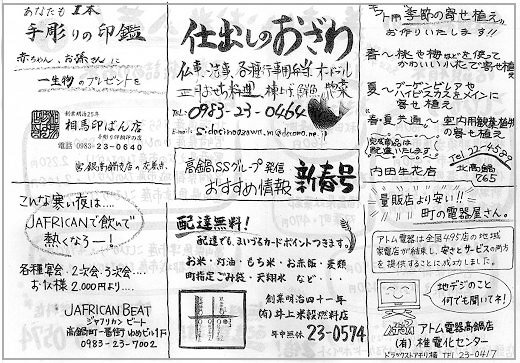 あなたも1本
手彫りの印鑑
赤ちゃん、お孫さんに
一生物のプレゼントを
創業明治25年
相馬印ばん店
手彫り印鑑御守処
電話 0983-23-0640
宮銀高鍋支店の左奥点
こんな寒い夜は……
JAFRICANで飲んで
熱くなろー!
各種宴会・2次会・3次会……
お1人様2,000円より……
JAFRICAN BEAT
ジャフリカン ビート
高鍋町一番街 ゆめぴい1F
0983-23-7002
仕出しのおざわ
仏事、法事、各種行事用弁当、オードブル
正月おせち料理、棒上げ、鉢盛、惣菜
TEL: 0983-23-0464
E-mail: sidasinoozawa.m@docomo.ne.jp
高鍋SSグループ発信
おすすめ情報
新春号
配達無料!
配達でも、まいづるカードポイントつきます。
お米・灯油・もち米・お赤飯・麦類
町指定ごみ袋・天翔米 など・・・
創業明治四十一年
(有)井上米穀燃料店
年中無休 23-0574
ギフト用“季節の寄せ植え”
お作りいたします!!
春〜桃や梅などを使って
かわいい木で寄せ植え
夏〜ブーゲンビリアや
ハイビスカスをメインに
寄せ植え
春・夏共通〜室内用観葉植物
の寄せ植え
完成商品は
配達いたします
Tel 22-4589
内田生花店
北高鍋
765
量販店より安い!!
町の電器屋さん。
アトム電器は全国495店の地域
家電店が結束し、安さとサービスの両方
を提供することに成功しました。
地デジのこと
何でも聞いてネ!
アトム電器高鍋店
(有)椎電化センター
ドラッグストアモリ横 TEL 23-0417